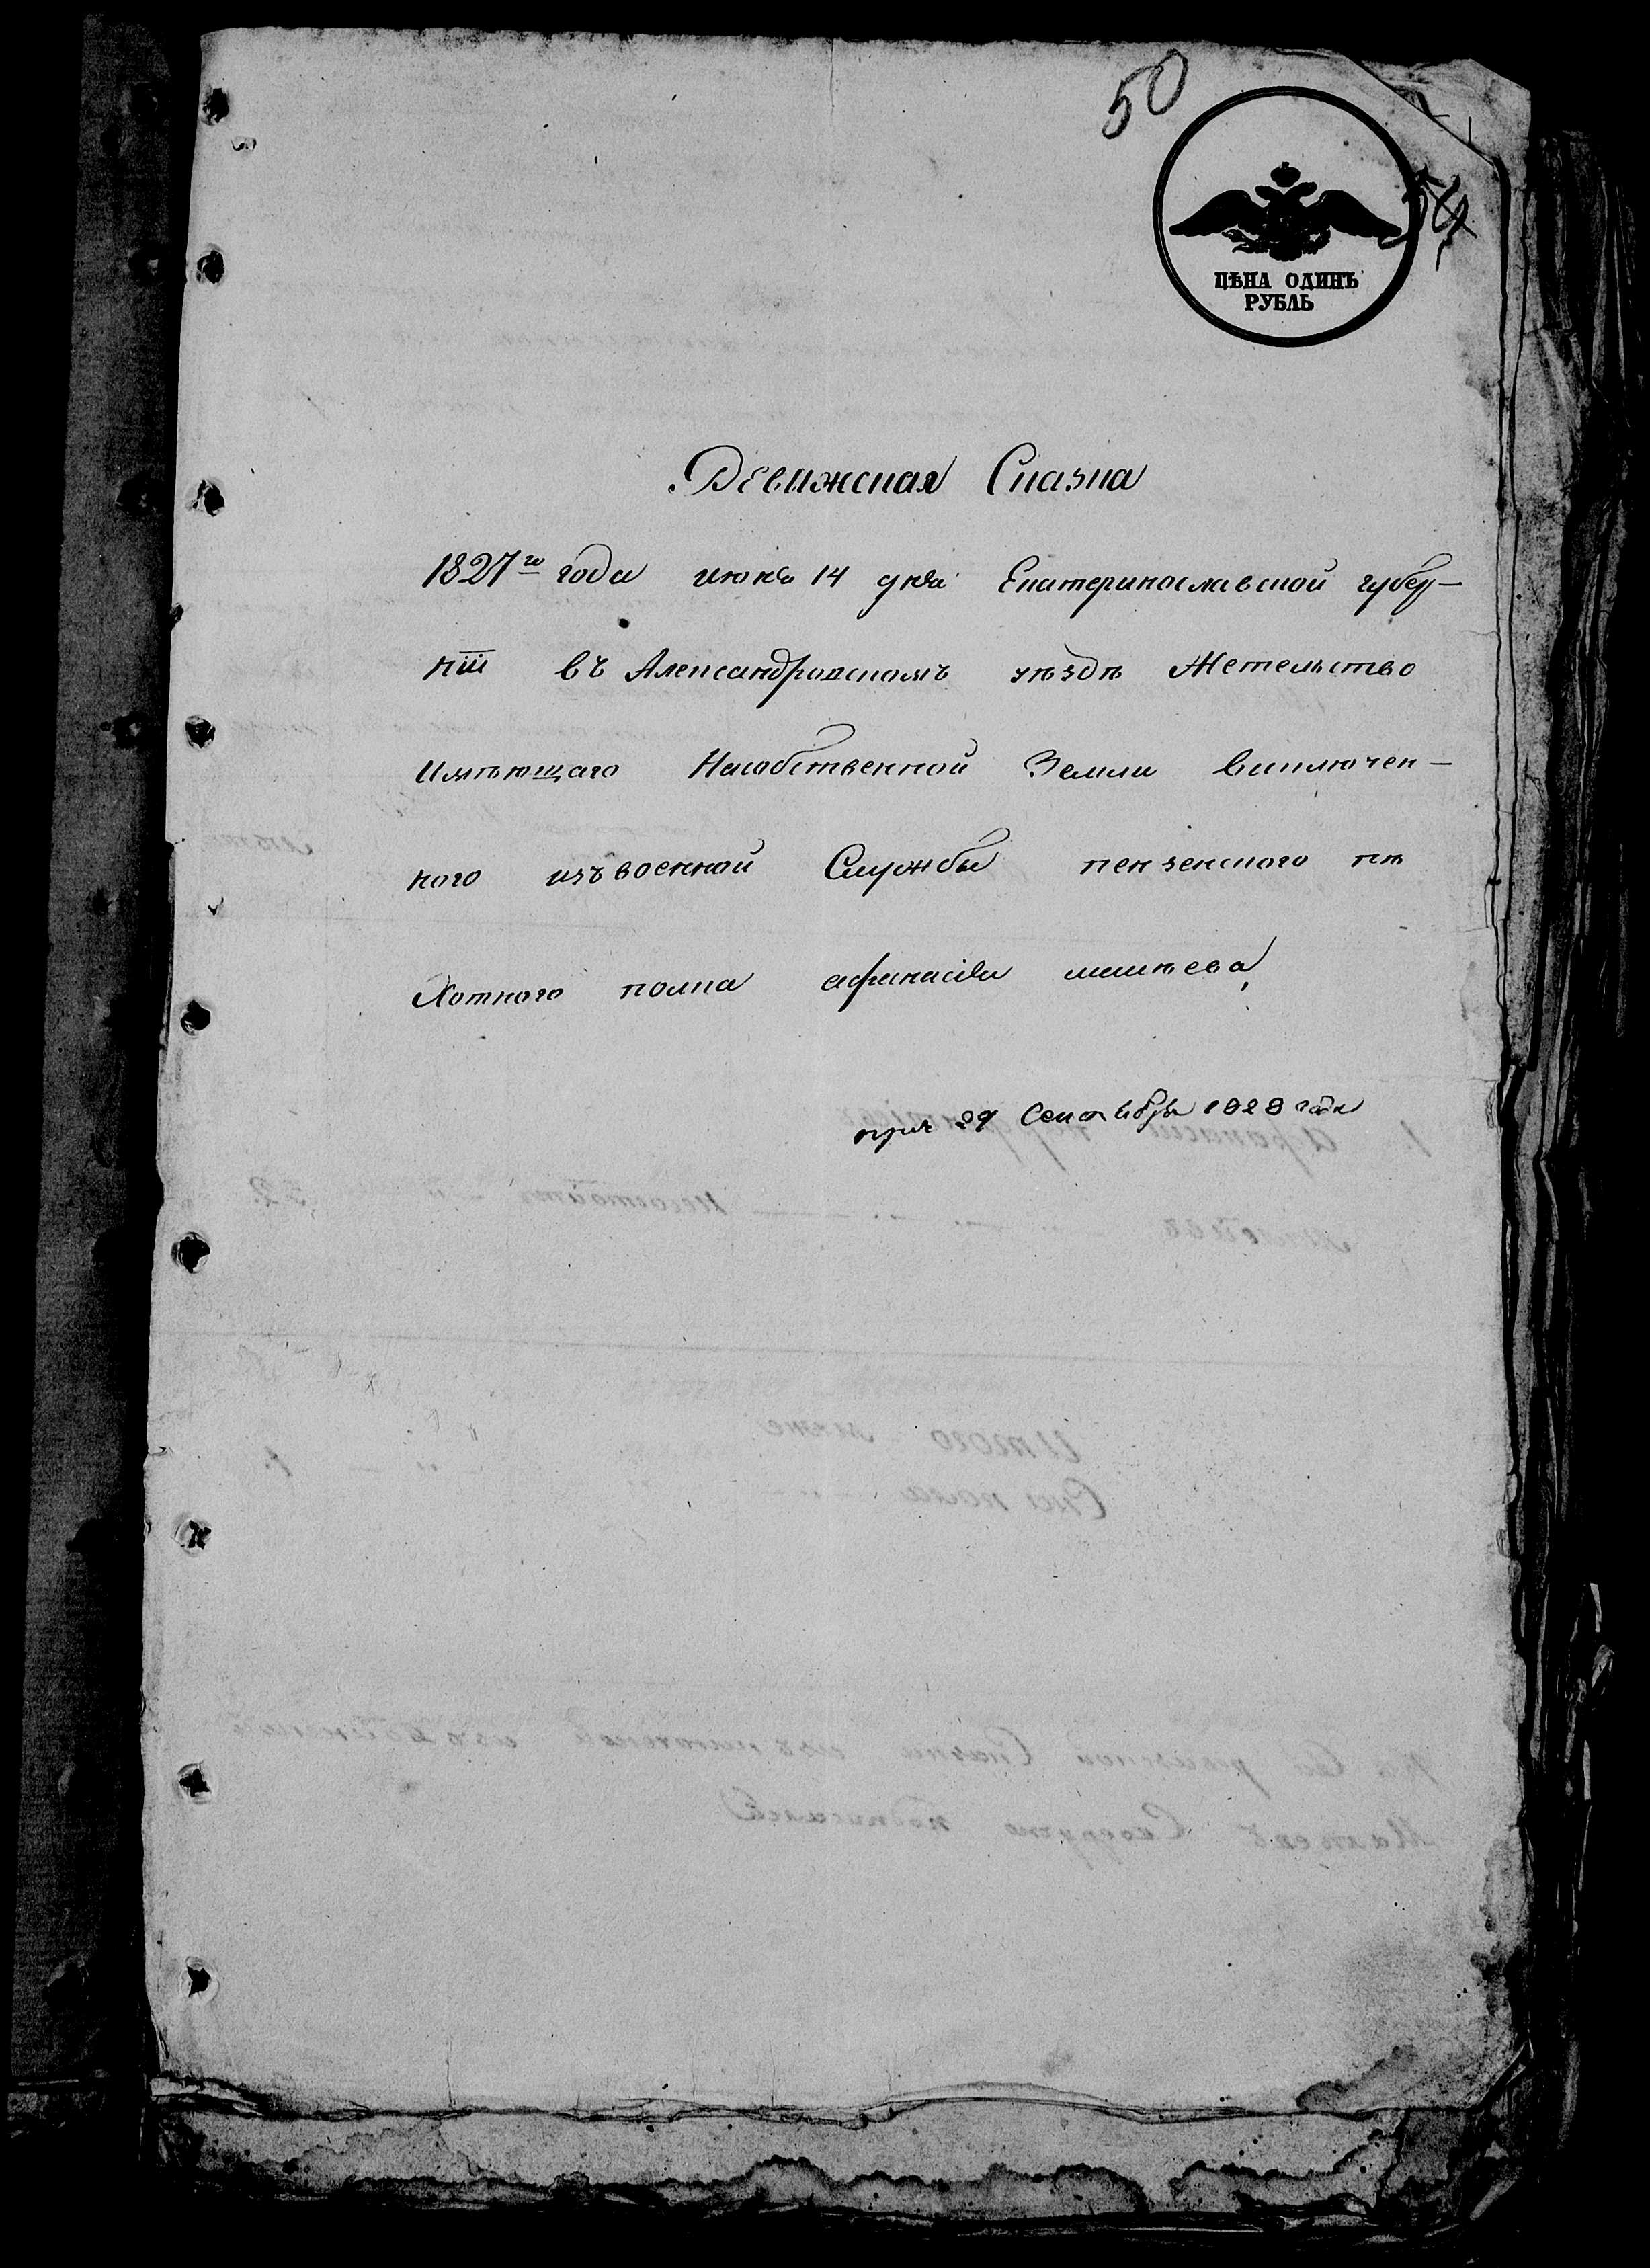 50
54
ЦѢНА ОДИНЪ
РУБЛЬ
Ревижская Сказка
1827го года июня 14 дня Екатеринославской губер-
нїи въ Александровскомъ уѣздѣ Жетельство
Имѣющаго Насобственной Земли Виключен-
ного изъвоенной Службы пензенского пѣ
Хотного полка афанасия
29 Сентября 1828 года